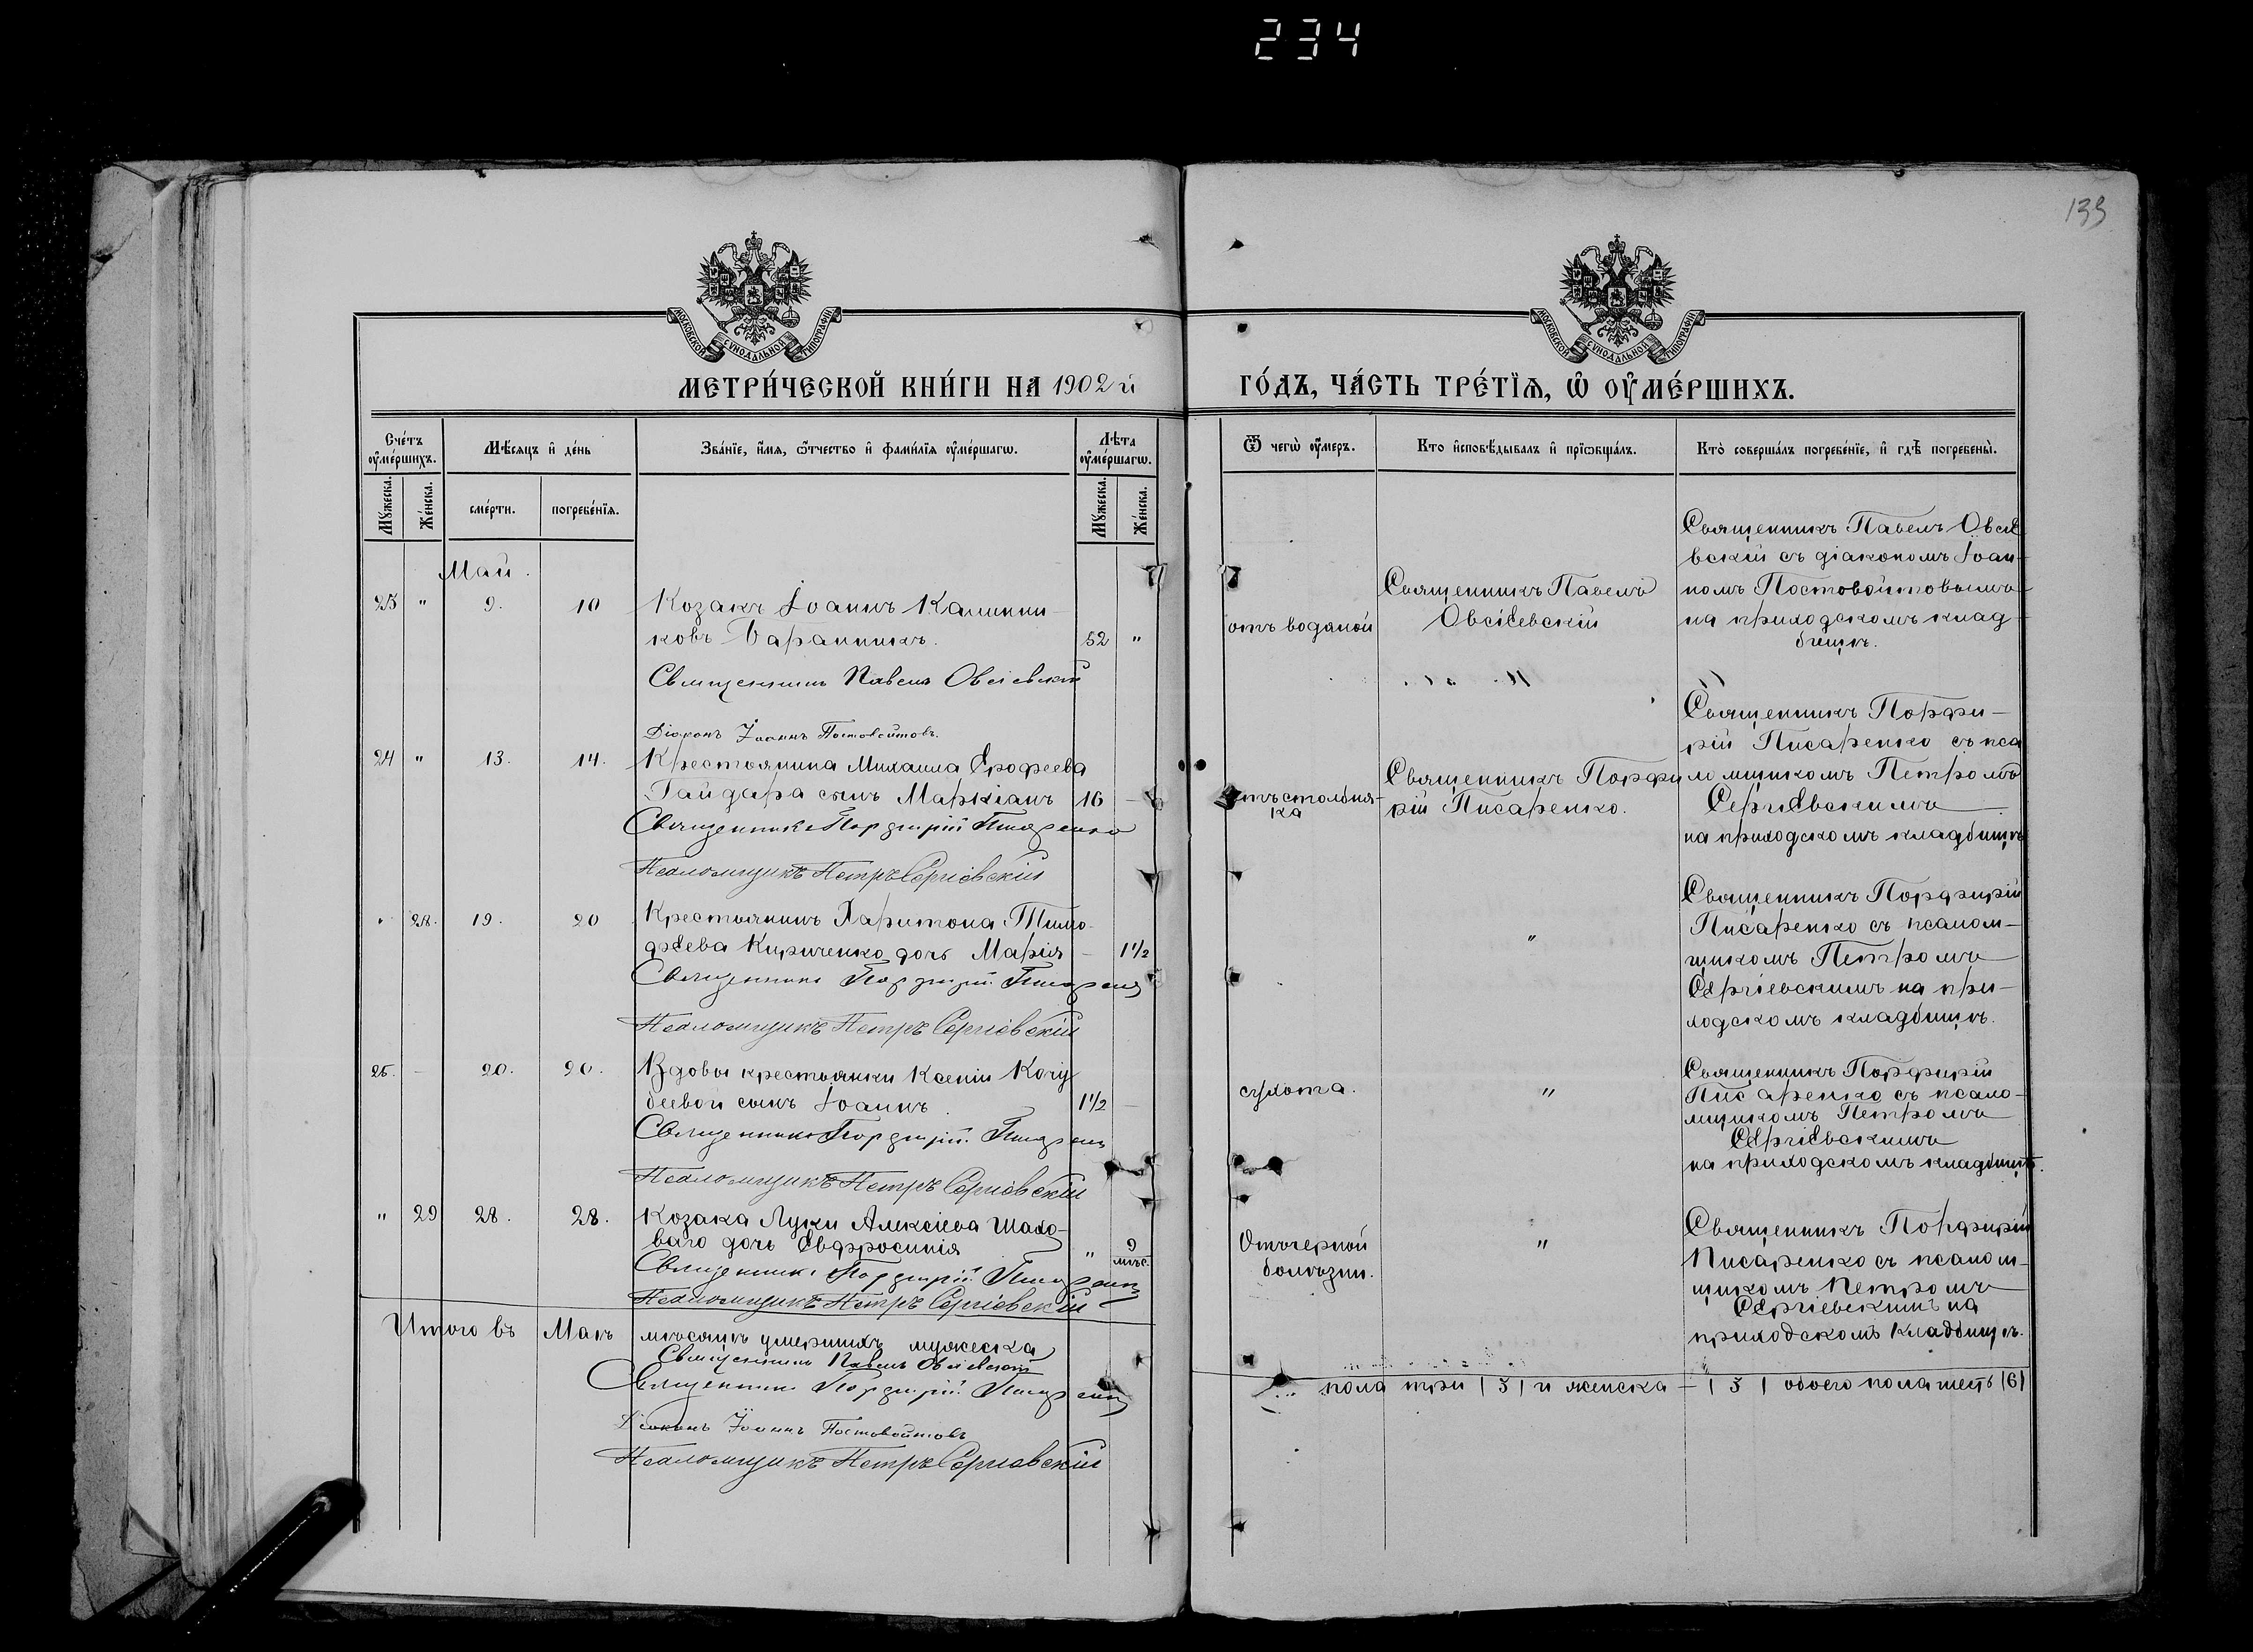 234
139
МОСКОВСКОЙ СѴНОДАЛЬНОЙ ТИПОГРАФІИ
МОСКОВСКОЙ СѴНОДАЛЬНОЙ ТИПОГРАФІИ
МЕТРИ́ЧЕСКОЙ КНИ́ГИ НА 1902 й
ГО́ДЪ, ЧА́СТЬ ТРЕ́ТЇѦ, Ѡ҆ ОУ҆МЕ́РШИХЪ.
Сче́тъ оу҆ме́ршихъ.
Мѣ́сяцъ и҆ де́нь
Зва́нїе, и҆́мя, ѻ҆́тчество и҆ фами́лїя оу҆ме́ршагѡ.
Лѣ́та оу҆ме́ршагѡ.
Му́жеска.
Же́нска.
сме́рти.
погребе́нїя.
Му́жеска.
Же́нска.
Ѿ чегѡ̀ оу҆́меръ.
Кто̀ и҆сповѣ́дывалъ и҆ прїѡбща́лъ.
Кто̀ соверша́лъ погребе́нїе, и҆ гдѣ̀ погребены̀.
Май.
23 " 9. 10 Козакъ Іоаннъ Калинни-
ковъ Баранникъ. 52 "
Священникъ Павелъ Овсіевскій
Діаконъ Іоаннъ Постовойтовъ.
отъ водяной
Священникъ Павелъ
Овсіевскій
Священникъ Павелъ Овсіе
вскій съ діакономъ Іоан-
номъ Постовойтовымъ
на приходскомъ клад-
бищѣ.
24 " 13. 14. Крестьянина Михаила Ерофеева
Гайдара сынъ Маркіанъ 16 —
Священникъ Порфирій Писаренко
Псаломщикъ Петръ Сергіевскій
отъ столбня-
ка
Священникъ Порфи
рій Писаренко.
Священникъ Порфи-
рій Писаренко съ пса
ломщикомъ Петромъ
Сергіевскимъ
на приходскомъ кладбищѣ
" 28. 19. 20 Крестьянинъ Харитона Тимо-
феева Кириченко дочь Марія — 1 1/2
Священникъ Порфирій Писаренко
Псаломщикъ Петръ Сергіевскій
"
Священникъ Порфирій
Писаренко съ псалом-
щикомъ Петромъ
Сергіевскимъ на при-
ходскомъ кладбищѣ.
25. — 20. 20. Вдовы крестьянки Ксеніи Кочу
беевой сынъ Іоаннъ. 1 1/2 —
Священникъ Порфирій Писаренко
Псаломщикъ Петръ Сергіевскій
сухота.
"
Священникъ Порфирій
Писаренко съ псало-
мщикомъ Петромъ
Сергіевскимъ
на приходскомъ кладбищѣ.
" 29 28. 28. Козака Луки Алексіева Шахо-
ваго дочь Евфросинія " 9 мѣс.
Священникъ Порфирій Писаренко
Псаломщикъ Петръ Сергіевскій
Отъ черной
болѣзни.
"
Священникъ Порфирій
Писаренко съ псалом-
щикомъ Петромъ
Сергіевскимъ на
приходскомъ кладбищѣ.
Итого въ Маѣ мѣсяцѣ умершихъ мужеска
пола три (3) и женска — (3) обоего пола шесть (6)
Священникъ Павелъ Овсіевскій
Священникъ Порфирій Писаренко
Діаконъ Іоаннъ Постовойтовъ
Псаломщикъ Петръ Сергіевскій